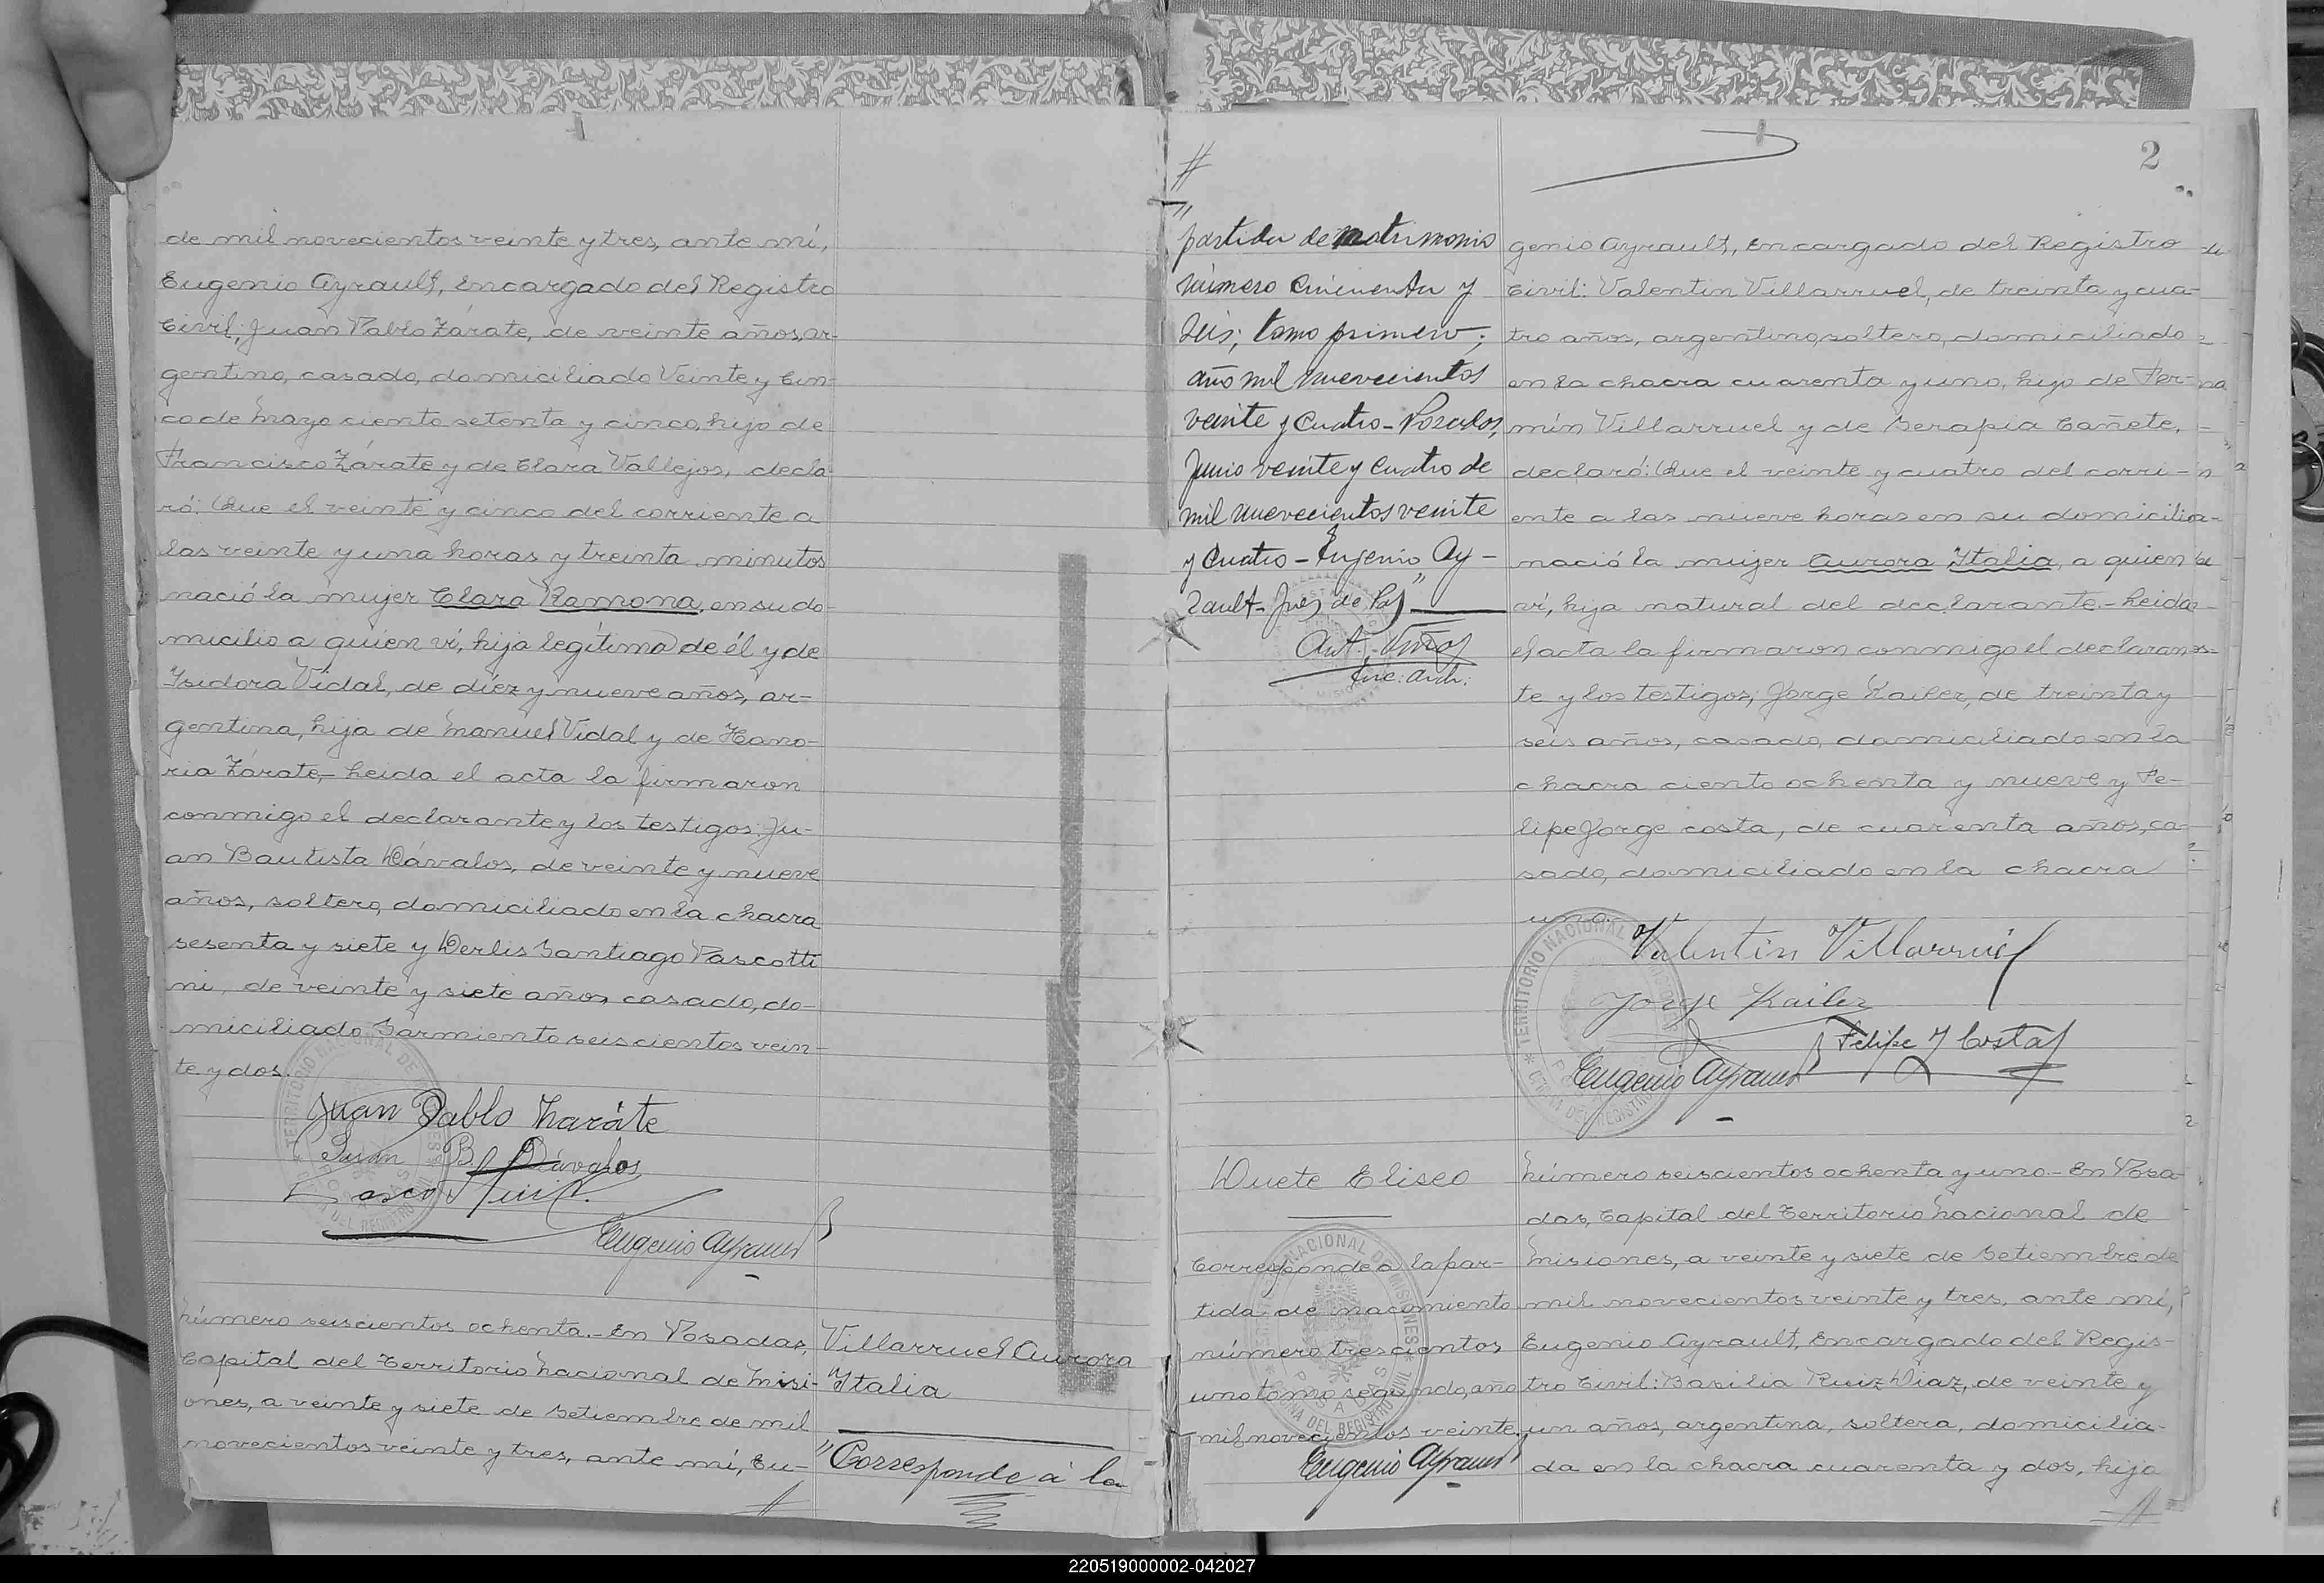 de mil novecientos veinte y tres, ante mí,
Eugenio Ayrault, Encargado del Registro
Civil; Juan Pablo Zárate, de veinte años, ar-
gentino, casado, domiciliado Veinte y Cin-
co de Mayo ciento setenta y cinco, hijo de
Francisco Zárate y de Clara Vallejos, decla-
ró: Que el veinte y cinco del corriente a
las veinte y una horas y treinta minutos
nació la mujer Clara Ramona, en su do-
micilio a quien ví, hija legítima de él y de
Isidora Vidal, de diéz y nueve años, ar-
gentina, hija de Manuel Vidal y de Hono-
ria Zárate.- Leida el acta la firmaron
conmigo el declarante y los testigos: Ju-
an Bautista Dávalos, de veinte y nueve
años, soltero, domiciliado en la chacra
sesenta y siete y Derlis Santiago Pascotti
ni, de veinte y siete años, casado, do-
miciliado Sarmiento seiscientos vein-
te y dos.
Juan Pablo Zaráte
Juan B. Dávalos
Eugenio Ayrault
Número seiscientos ochenta.- En Posadas,
Capital del Territorio Nacional de Misi-
ones, a veinte y siete de Setiembre de mil
novecientos veinte y tres, ante mí, Eu-
Villarruel Aurora
Italia
"Corresponde á la
2
"
partida de matrimonio
número cincuenta y
seis; tomo primero;
año mil nuevecientos
veinte y cuatro - Posadas,
Junio veinte y cuatro de
mil nuevecientos veinte
y cuatro - Eugenio Ay-
rault - Juez de Paz"
Enc: arch:
genio Ayrault, Encargado del Registro
Civil: Valentin Villarruel, de treinta y cua-
tro años, argentino, soltero, domiciliado
en la chacra cuarenta y uno, hijo de Fer-
mín Villarruel y de Serapia Cañete,
declaró: Que el veinte y cuatro del corri-
ente a las nueve horas en su domicilio
nació la mujer Aurora Italia, a quien
ví, hija natural del declarante.- Leida
el acta la firmaron conmigo el declaran-
te y los testigos; Jorge Kailer, de treinta y
seis años, casado, domiciliado en la
chacra ciento ochenta y nueve y Fe-
lipe Jorge costa, de cuarenta años, ca-
sado, domiciliado en la chacra
uno.
Valentin Villarruel
Jorge Kailer
Felipe J Costa
Eugenio Ayrault
TERRITORIO NACIONAL DE MISIONES
OFICINA DEL REGISTRO CIVIL
POSADAS
Duete Eliseo
Corresponde a la par-
tida de nacimiento
número trescientos
uno tomo segundo, año
mil novecientos veinte.
Eugenio Ayrault
Número seiscientos ochenta y uno.- En Posa-
das, Capital del Territorio Nacional de
Misiones, a veinte y siete de Setiembre de
mil novecientos veinte y tres, ante mí,
Eugenio Ayrault, Encargado del Regis-
tro Civil: Basilia Ruiz Diaz, de veinte y
un años, argentina, soltera, domicilia-
da en la chacra cuarenta y dos, hija
220519000002-042027